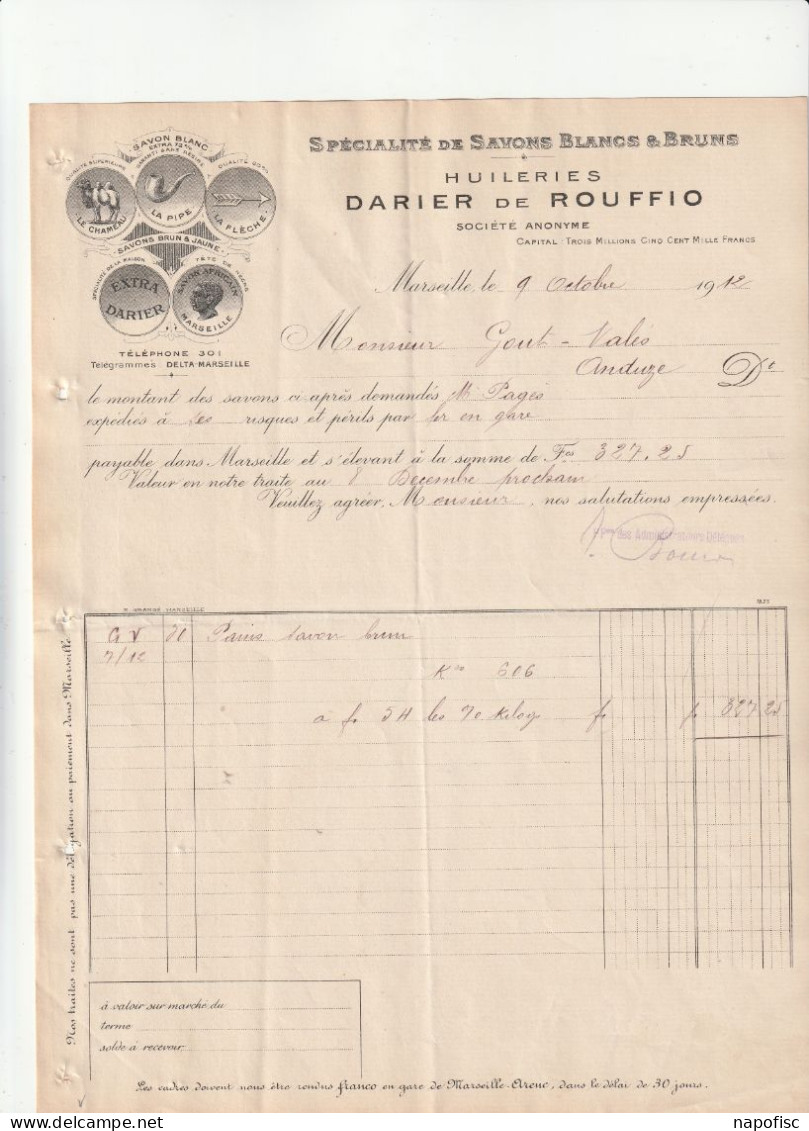 SPÉCIALITÉ DE SAVONS BLANCS & BRUNS
HUILERIES
DARIER DE ROUFFIO
SOCIÉTÉ ANONYME
CAPITAL : TROIS MILLIONS CINQ CENT MILLE FRANCS
SAVON BLANC
EXTRA 72%
GARANTI SANS RÉSINE
QUALITÉ SUPÉRIEURE
QUALITÉ 60%
LE CHAMEAU
LA PIPE
LA FLÈCHE
SAVONS BRUN & JAUNE
SPÉCIALITÉ DE LA MAISON
TÊTE DE NÈGRE
EXTRA
DARIER
SAVON AFRICAIN
MARSEILLE
TÉLÉPHONE 301
Télégrammes: DELTA-MARSEILLE
Marseille, le 9 Octobre 1912
Monsieur Gout-Valès
Anduze
Dt
le montant des savons ci après demandés Mr Pagès
expédiés à ses risques et périls par fer en gare
payable dans Marseille et s'élevant à la somme de Fcs 327.25
Valeur en notre traite au 8 Decembre prochain
Veuillez agréer, Monsieur, nos salutations empressées.
des Administrateurs Délégués
MARSEILLE
G V Pains savon brun
7/10
Kos 606
à fr 54 les % Kilog fr fr 327 25
Nos traites ne sont pas une dérogation au paiement dans Marseille
à valoir sur marché du
terme
solde à recevoir
Les cadres doivent nous être rendus franco en gare de Marseille-Arenc, dans le délai de 30 jours.
napofisc